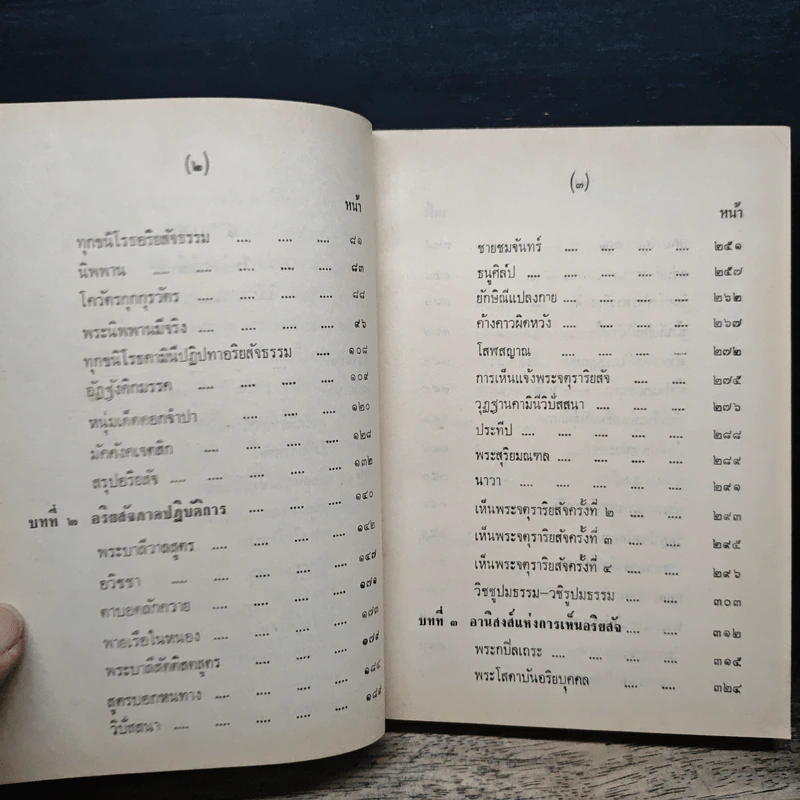 (๒)
หน้า
ทุกขนิโรธอริยสัจธรรม .... .... .... ๘๑
นิพพาน .... .... .... .... ๘๓
โควัตรกุกกุรวัตร .... .... .... ๘๘
พระนิพพานมีจริง .... .... .... ๙๖
ทุกขนิโรธคามินีปฏิปทาอริยสัจธรรม .... ๑๐๘
อัฏฐังคิกมรรค .... .... .... ๑๐๙
หนุ่มเด็ดดอกจำปา .... .... .... ๑๒๐
มัคคังคเจตสิก .... .... .... ๑๒๘
สรุปอริยสัจ .... .... .... .... ๑๓๒
บทที่ ๒ อริยสัจภาคปฏิบัติการ .... .... .... ๑๔๐
พระบาลีวาลสูตร .... .... .... .... ๑๔๒
อวิชชา .... .... .... .... ๑๔๗
ตาบอดลักควาย .... .... .... ๑๗๑
พายเรือในหนอง .... .... .... .... ๑๗๓
พระบาลีสัตติสตสูตร .... .... .... ๑๗๙
สูตรบอกหนทาง .... .... .... .... ๑๘๔
วิปัสสนา .... .... .... .... ๑๘๙
(๓)
หน้า
ชายชมจันทร์ .... .... .... .... ๒๕๑
ธนูศิลป .... .... .... .... ๒๕๗
ยักษิณีแปลงกาย .... .... .... .... ๒๖๒
ค้างคาวผิดหวัง .... .... .... .... ๒๖๗
โสฬสญาณ .... .... .... .... ๒๗๒
การเห็นแจ้งพระจตุราริยสัจ .... .... ๒๗๕
วุฏฐานคามินีวิปัสสนา .... .... .... ๒๗๖
ประทีป .... .... .... .... .... ๒๘๘
พระสุริยมณฑล .... .... .... .... ๒๘๙
นาวา .... .... .... .... .... ๒๙๑
เห็นพระจตุราริยสัจครั้งที่ ๒ .... .... ๒๙๓
เห็นพระจตุราริยสัจครั้งที่ ๓ .... .... ๒๙๕
เห็นพระจตุราริยสัจครั้งที่ ๔ .... .... ๒๙๖
วิชชูปมธรรม–วชิรูปมธรรม .... .... ๓๐๓
บทที่ ๓ อานิสงส์แห่งการเห็นอริยสัจ .... .... ๓๑๒
พระกบิลเถระ .... .... .... .... ๓๑๕
พระโสดาบันอริยบุคคล .... .... ๓๒๔